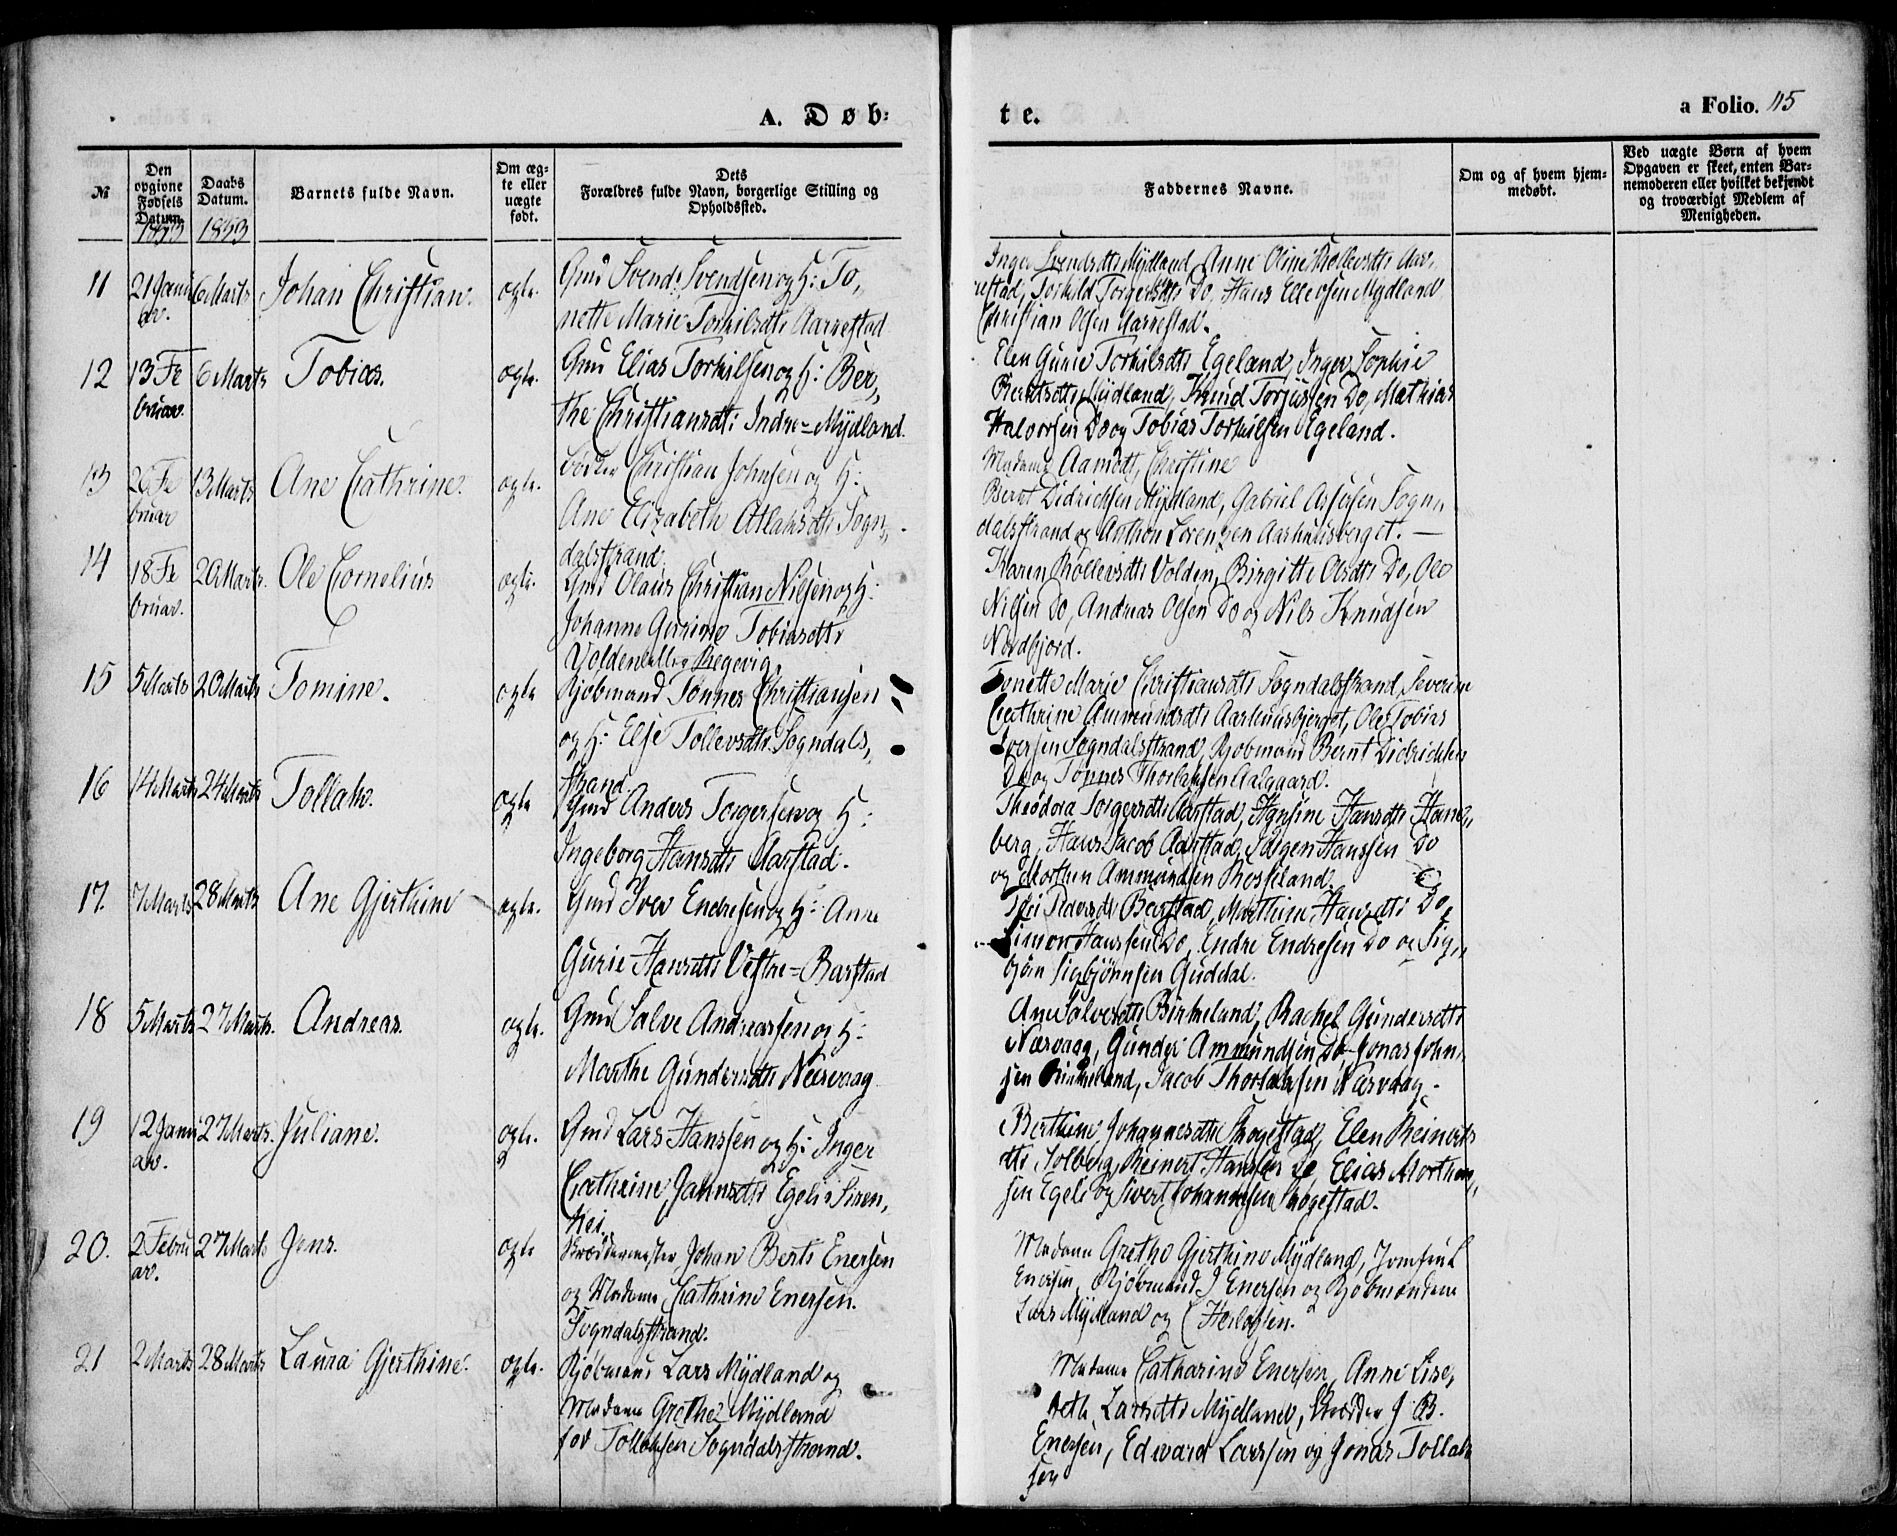 A. Døb-
te.
a Folio. 115
№
Den opgivne Fødsels Datum. 1853
Daabs Datum. 1853
Barnets fulde Navn.
Om ægte eller uægte født.
Dets Forældres fulde Navn, borgerlige Stilling og Opholdssted.
Faddernes Navne.
Om og af hvem hjemmedøbt.
Ved uægte Børn af hvem Opgaven er skeet, enten Barnemoderen eller hvilket bekjendt og troværdigt Medlem af Menigheden.
11 21 Janu ar. 6 Marts Johan Christian. ægte.
Gmd Svend Svendsen og H: To,
nette Marie Torkilsdtr Aarrestad
Inger Svendsdtr Mydland, Anne Oline Rollevsdtr Aar,
restad, Torkild Torgersdtr Do, Hans Ellevsen Mydland
Christian Olsen Aarrestad.
12 13 Fe bruar 6 Marts Tobias. ægte.
Gmd Elias Torkilsen og H: Ber,
the Christiansdt: Indre-Mydland.
Elen Gurie Torkilsdtr Egeland, Inger Sophie
Berntsdtr Mydland, Knud Torjussen Do, Mathias
Halvorsen Do og Tobias Torkilsen Egeland.
13 26 Fe bruar 13 Marts Ane Cathrine. ægte.
Christian Johnsen og H:
Ane Elizabeth Atlaksdtr Sogn,
dalsstrand.
Madame Aamodt, Christine
Bernt Didrichsen Mydland, Gabriel Assersen Sogn,
dalsstrand og Anthon Lorentzen Aarhuusberget. —
14 18 Fe bruar. 20 Marts. Ole Cornelius ægte.
Gmd Olaus Christian Nilsen og H:
Johanne Gurine Tobiasdtr
Volden eller Regevig.
Karen Rollevsdtr Volden, Birgitte Olsdtr Do, Ole
Nilsen Do, Andreas Olsen Do og Nils Knudsen
Nordfjord.
15 5 Marts 20 Marts Tomine. ægte
Kjøbmand Tønnes Christiansen
og H: Else Tollevsdtr Sogndals,
strand.
Tonette Marie Christiansdtr Sogndalsstrand, Severine
Cathrine Ammundsdtr Aarhuusbjerget, Ole Tobias
Iversen Sogndalsstrand, Kjøbmand Bernt Didrichsen
Do og Tønnes Thorlaksen Aalgaard.
16 14 Marts 24 Marts Tollak. ægte
Gmd Anders Torgersen og H:
Ingeborg Hansdtr Aarstad.
Theodora Torgersdtr Aarstad, Hansine Hansdtr Hane,
berg, Hans Jacob Aarstad, Salgen Hanssen Do
og Morthen Ammundsen Røskeland.
17. 7 Marts 28 Marts Ane Gjerthine ægte.
Gmd Iver Endresen og H: Anne
Gurie Hansdtr Vestre-Barstad
Pedersdt Barstad, Marthine Hansdtr Do,
Simon Hanssen Do, Endre Endresen Do og Sig,
bjørn Sigbjørnsen Guddal.
18 5 Marts 27 Marts. Andreas. ægte.
Gmd Salve Andreassen og H:
Marthe Gundersdtr Nærvaag
Ane Salvesdtr Birkeland, Rachel Gundersdtr
Nærvaag, Gunder Ammundsen Do, Jonas John,
sen Birkeland, Jacob Thorlaksen Nærvaag.
19 12 Janu ar. 27 Marts. Juliane. ægte.
Gmd Lars Hanssen og H: Inger
Cathrine Jahnsdtr Egeli i Siren,
Hei.
Berthine Johannesdtr Skogestad, Elen Reinerts
dtr Solberg, Reinert Hanssen Do, Elias Morthen,
sen Egeli og Sivert Johannesen Skogestad.
20. 2 Febru ar. 27 Marts Jens. ægte
Skræddermester Johan Berts Enersen
og Madame Cathrine Enersen.
Sogndalsstrand.
Madame Grethe Gjerthine Mydland, Jomfru L
Enersen, Kjøbmand J Enersen og Kjøbmændene
Lars Mydland og C Herlofsen.
21 2 Marts 28 Marts Laura Gjerthine. ægte.
Kjøbmand Lars Mydland og
Madame Grethe Mydland
fød Tollaksen Sogndalsstrand.
Madame Catharine Enersen, Anne Lise,
beth Larsdtr Mydland, Skrædder J. B.
Enersen, Edward Larssen og Jonas Tollak
sen